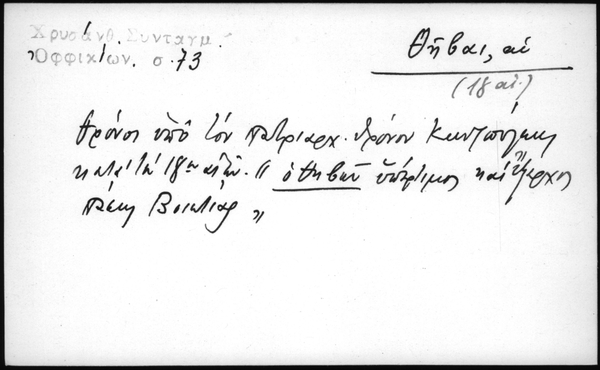 Χρυσάνθ. Συνταγμ.
Ὀφφικίων. σ. 73
Θῆβαι, αἱ
(18 αἰ.)
θρόνος ὑπὸ τὸν πατριαρχ. θρόνον Κων/πόλεως
κατὰ τὸν 18ον αἰῶν. "ὁ Θηβῶν ὑπέρτιμος καὶ ἔξαρχος
πάσης Βοιωτίας"